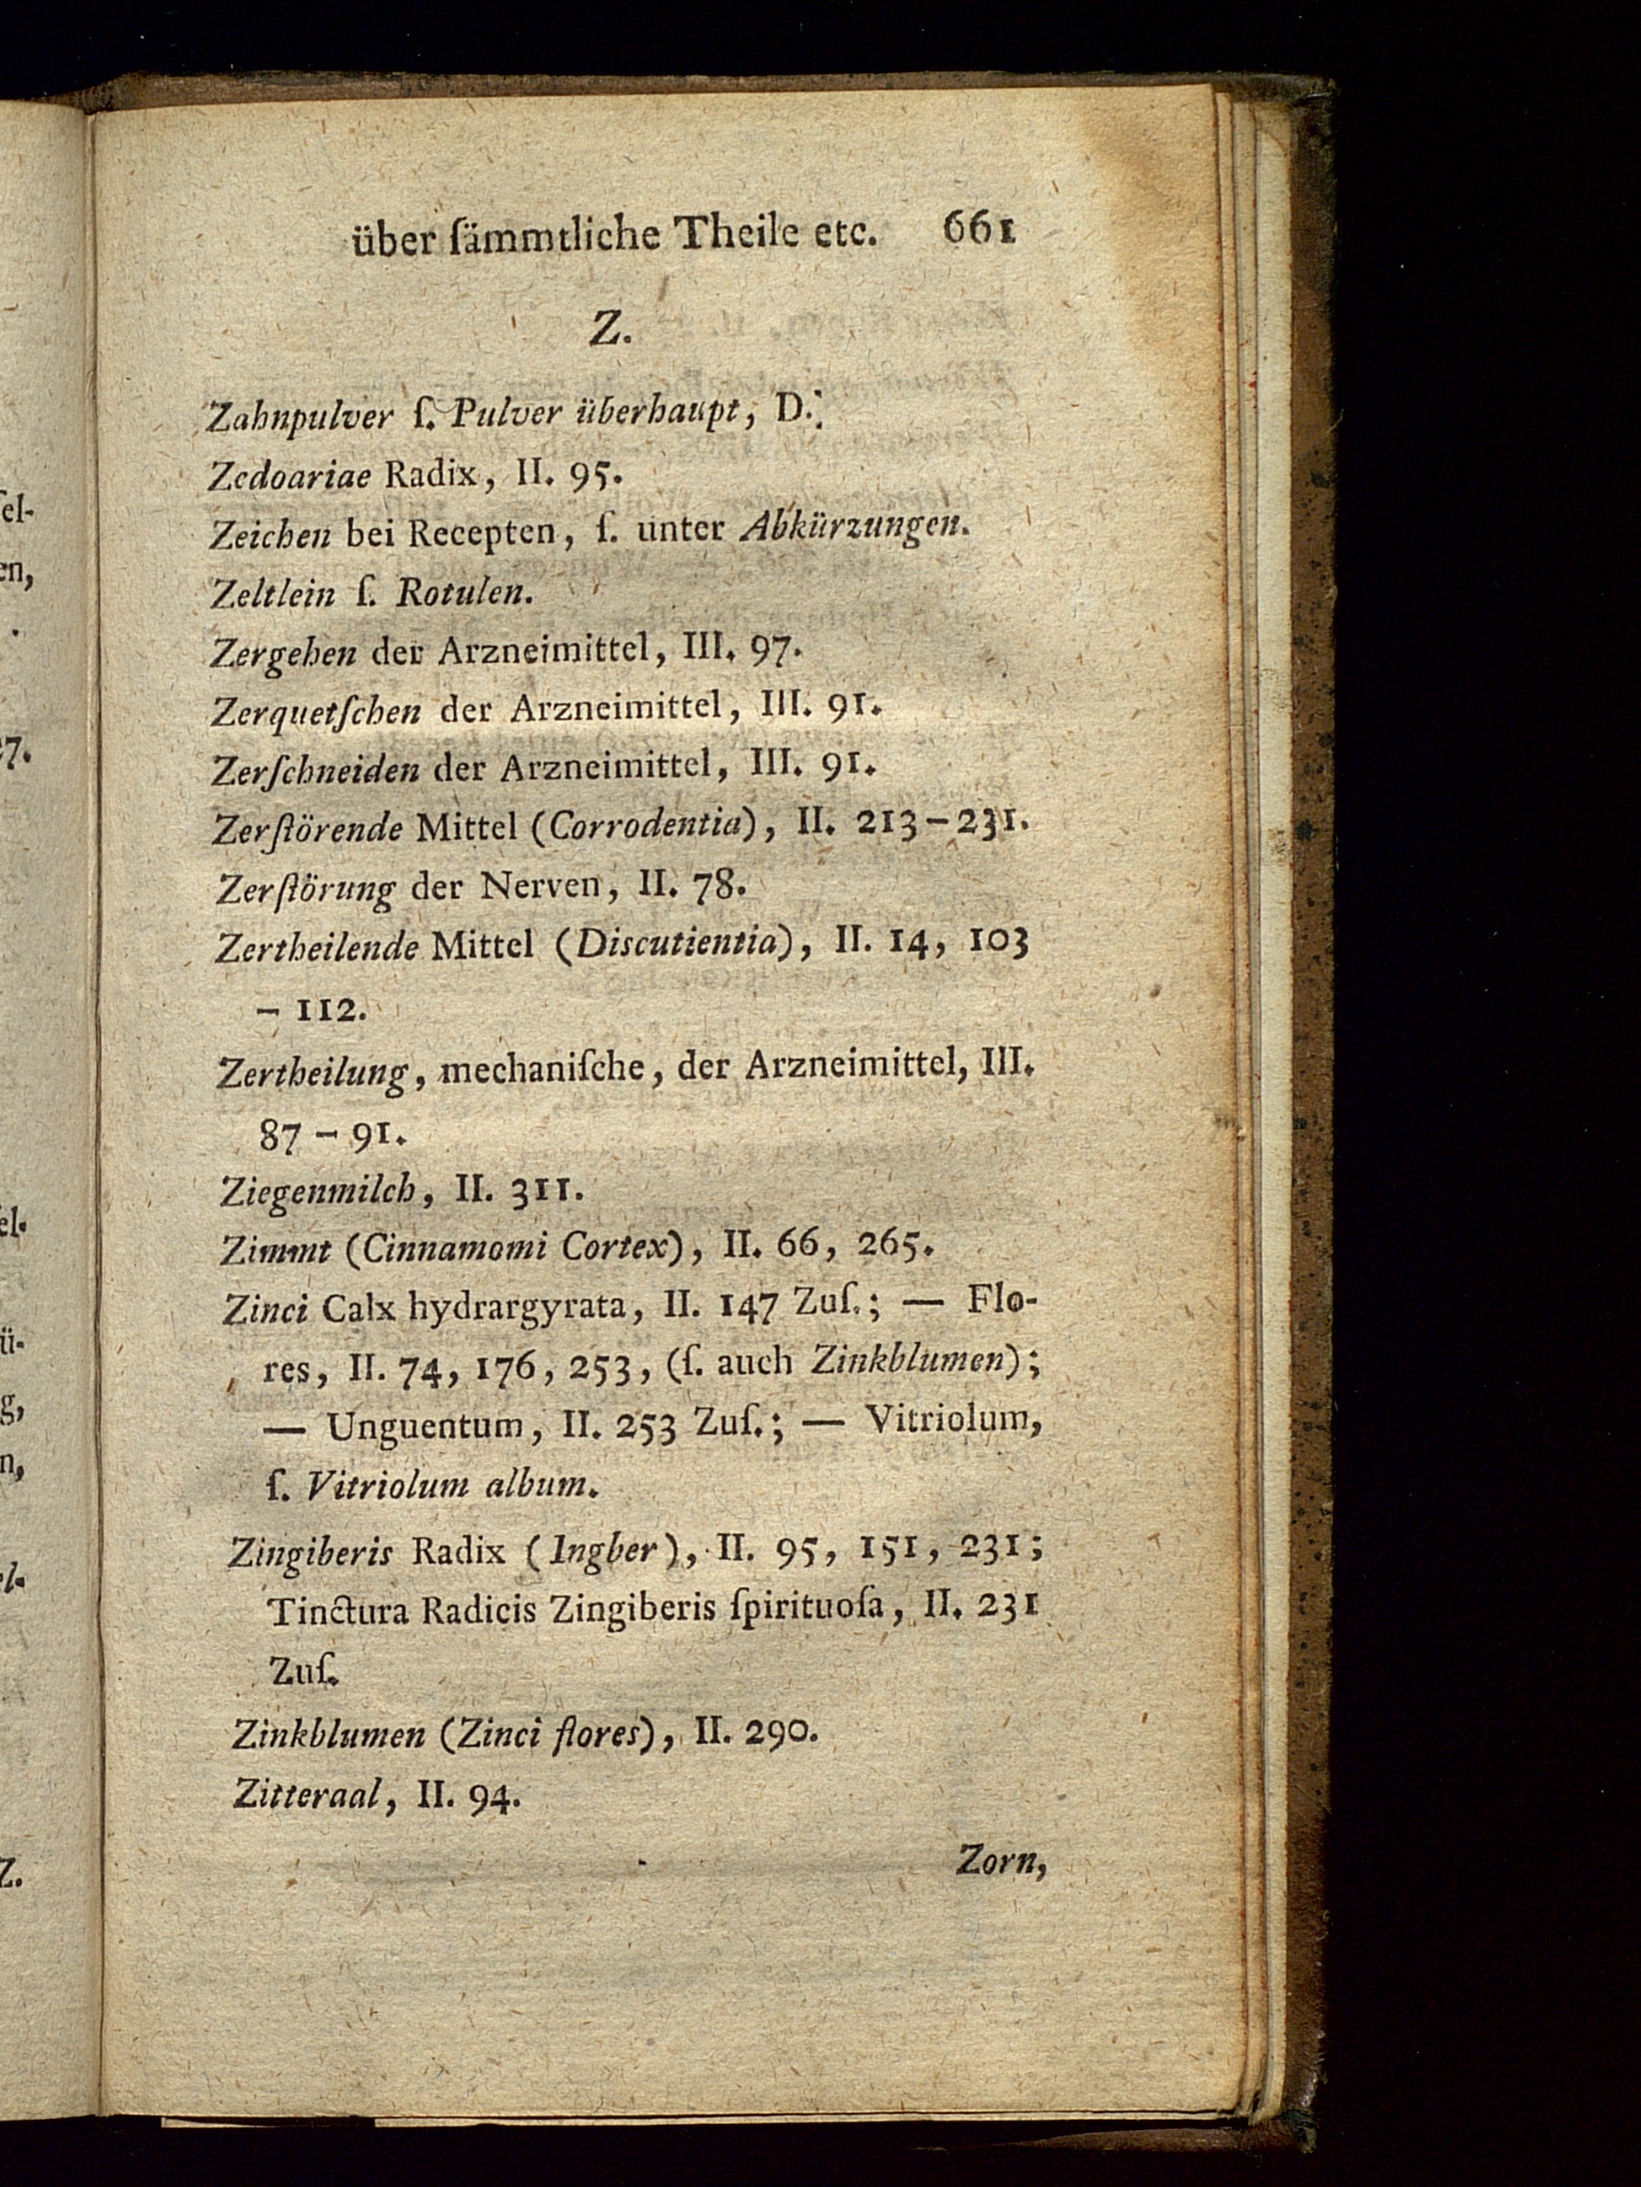 über ſämmtliche Theile etc. 661
Z.
Zahnpulver ſ. Pulver überhaupt, D.
Zedoariae Radix, II. 95.
Zeichen bei Recepten, ſ. unter Abkürzungen.
Zeltlein ſ. Rotulen.
Zergehen der Arzneimittel, III. 97.
Zerquetſchen der Arzneimittel, III. 91.
Zerſchneiden der Arzneimittel, III. 91.
Zerſtörende Mittel (Corrodentia), II. 213–231.
Zerſtörung der Nerven, II. 78.
Zertheilende Mittel (Discutientia), II. 14, 103
– 112.
Zertheilung, mechaniſche, der Arzneimittel, III.
87 – 91.
Ziegenmilch, II. 311.
Zimmt (Cinnamomi Cortex), II. 66, 265.
Zinci Calx hydrargyrata, II. 147 Zuſ.; — Flo-
res, II. 74, 176, 253, (ſ. auch Zinkblumen);
— Unguentum, II. 253 Zuſ.; — Vitriolum,
ſ. Vitriolum album.
Zingiberis Radix (Ingber), II. 95, 151, 231;
Tinctura Radicis Zingiberis ſpirituoſa, II. 231
Zuſ.
Zinkblumen (Zinci flores), II. 290.
Zitteraal, II. 94.
Zorn,